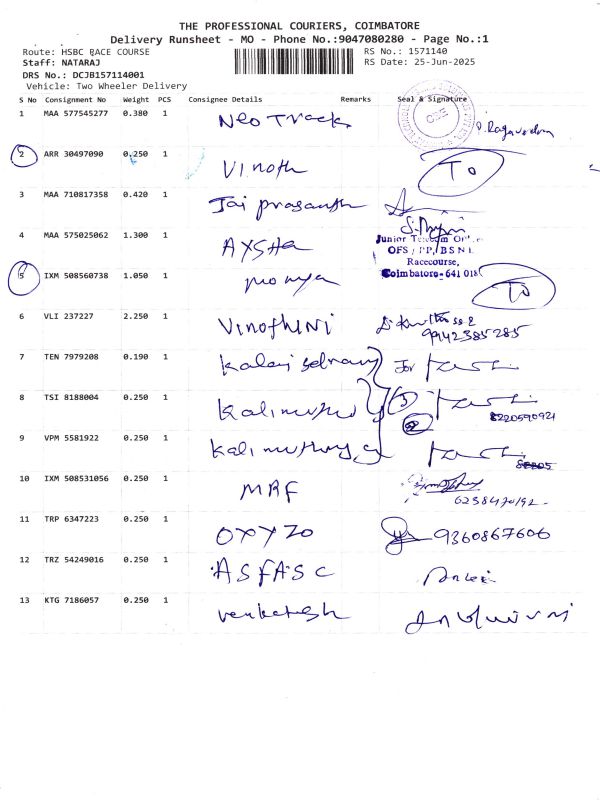 THE PROFESSIONAL COURIERS, COIMBATORE
Delivery Runsheet - MO - Phone No.:9047080280 - Page No.:1
Route: HSBC RACE COURSE RS No.: 1571140
Staff: NATARAJ RS Date: 25-Jun-2025
DRS No.: DCJB157114001
Vehicle: Two Wheeler Delivery
S No Consignment No Weight PCS Consignee Details Remarks Seal & Signature
1 MAA 577545277 0.380 1 Neo Track P. Ragavendra
2 ARR 30497090 0.250 1 Vinoth To
3 MAA 710817358 0.420 1 Jai prasanth
4 MAA 575025062 1.300 1 AYSHA
Junior Telecom
OFS / PP, BSNL
Racecourse,
Coimbatore - 641 018
5 IXM 508560738 1.050 1 To
6 VLI 237227 2.250 1 Vinothini
9942385285
7 TEN 7979208 0.190 1 Kalai selvan for
8 TSI 8188004 0.250 1 Kalimuthu 3
8220590921
9 VPM 5581922 0.250 1 Kalimuthu
10 IXM 508531056 0.250 1 MRF
6238470192
11 TRP 6347223 0.250 1 OXYZO 9360867606
12 TRZ 54249016 0.250 1 ASFASC
13 KTG 7186057 0.250 1 Venkatesh